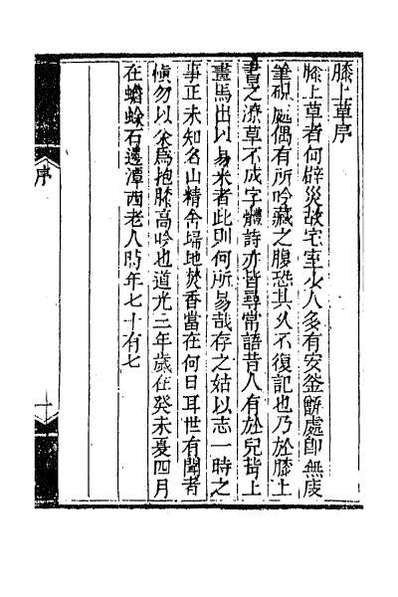 膝上草序
膝上草者何辟災故宅室少人多有安釜甑處即無庋
筆硯處偶有所吟藏之腹恐其久不復記也乃於膝上
書之潦草不成字體詩亦皆尋常語昔人有於兒背上
畫馬出以易米者此則何所易哉存之姑以志一時之
事正未知名山精舍埽地焚香當在何日耳世有聞者
愼勿以余爲抱膝高吟也道光三年歲在癸未夏四月
在蟾蜍石邊潭西老人時年七十有七
序
一